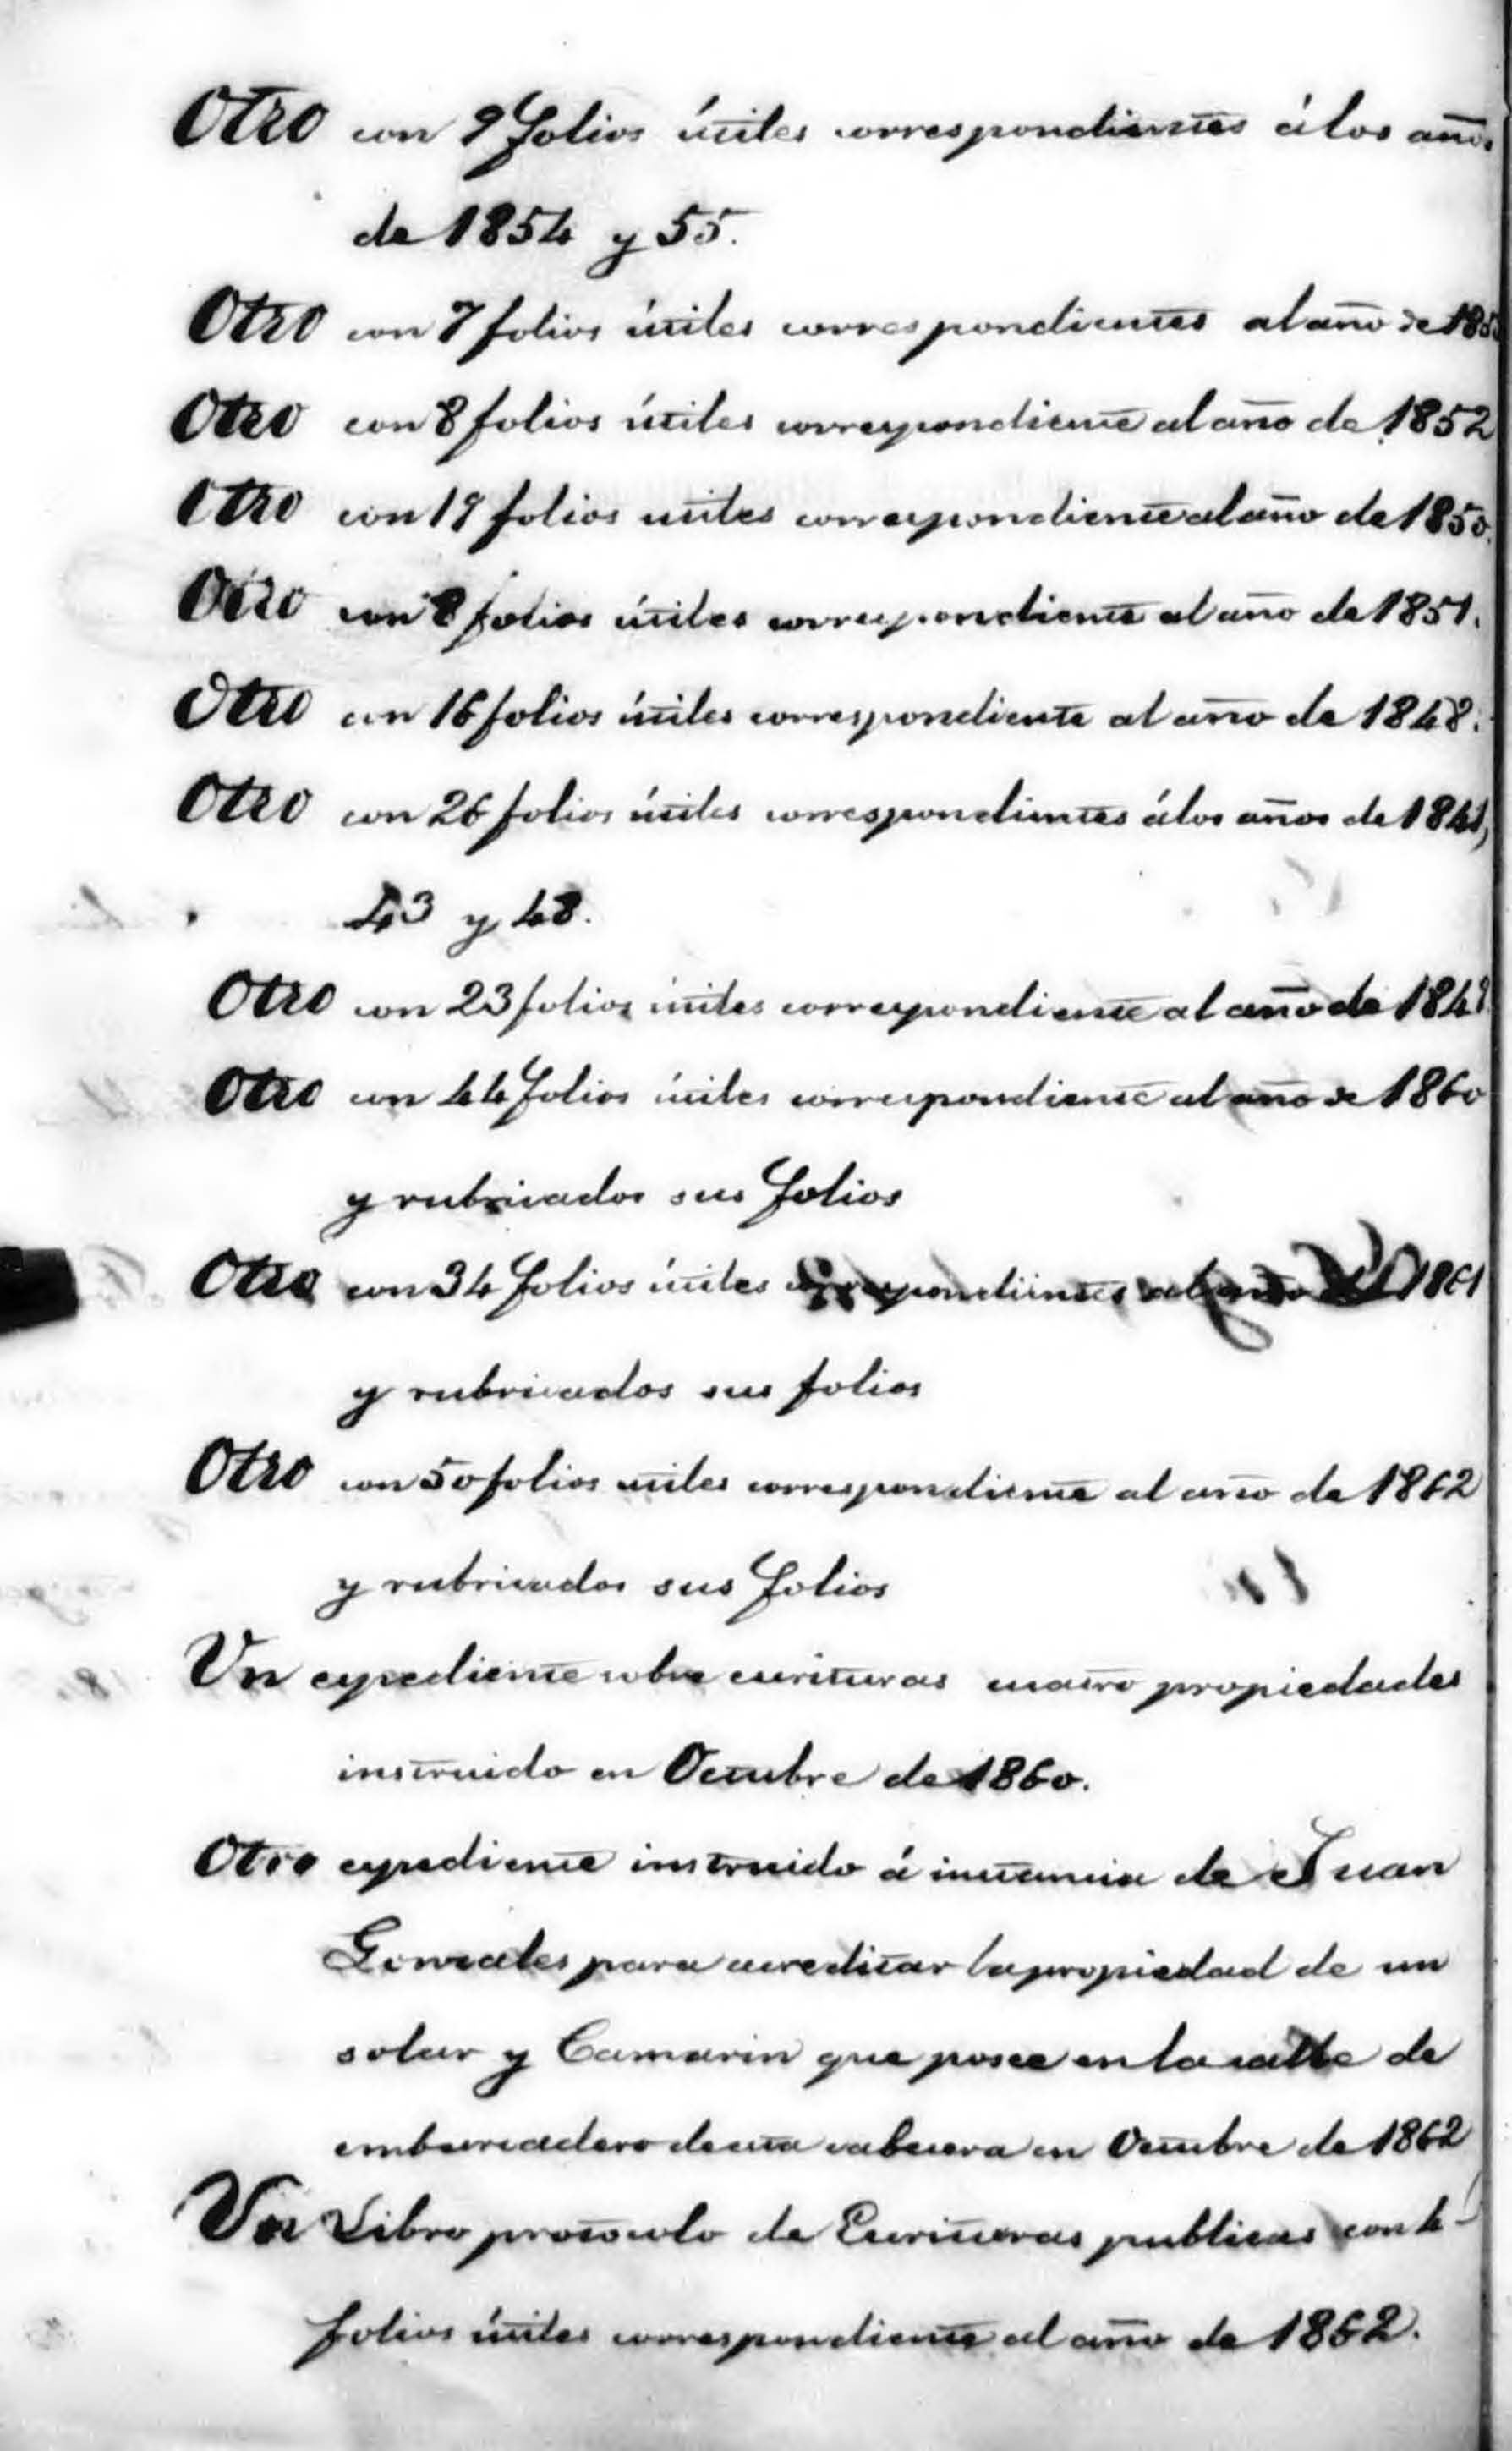 Otro con 9 folios útiles correspondientes á los años
de 1854 y 55.
Otro con 7 folios útiles correspondientes al año de
Otro con 8 folios útiles correspondiente al año de 1852
Otro con 19 folios utiles correspondiente al año de 1850.
Otro con 8 folios útiles correspondiente al año de 1851.
Otro con 16 folios útiles correspondiente al año de 1848.
Otro con 26 folios útiles correspondientes á los años de 1841,
43 y 48.
Otro con 23 folios útiles correspondiente al año de
Otro con 44 folios útiles correspondiente al año de 1860
y rubricados sus folios
Otro con 34 folios útiles correspondientes al año de 1861
y rubricados sus folios
Otro con 50 folios utiles correspondiente al año de 1862
y rubricados sus folios
Un espediente sobre escrituras cuatro propiedades
instruido en Octubre de 1860.
Otro espediente instruido á instancia de Juan
Gonzales para acreditar la propiedad de un
solar y Camarin que posee en la calle de
embarcadero de esta cabecera en Octubre de 1862
Un Libro protocolo de Escrituras publicas con 4
folios útiles correspondiente al año de 1862.